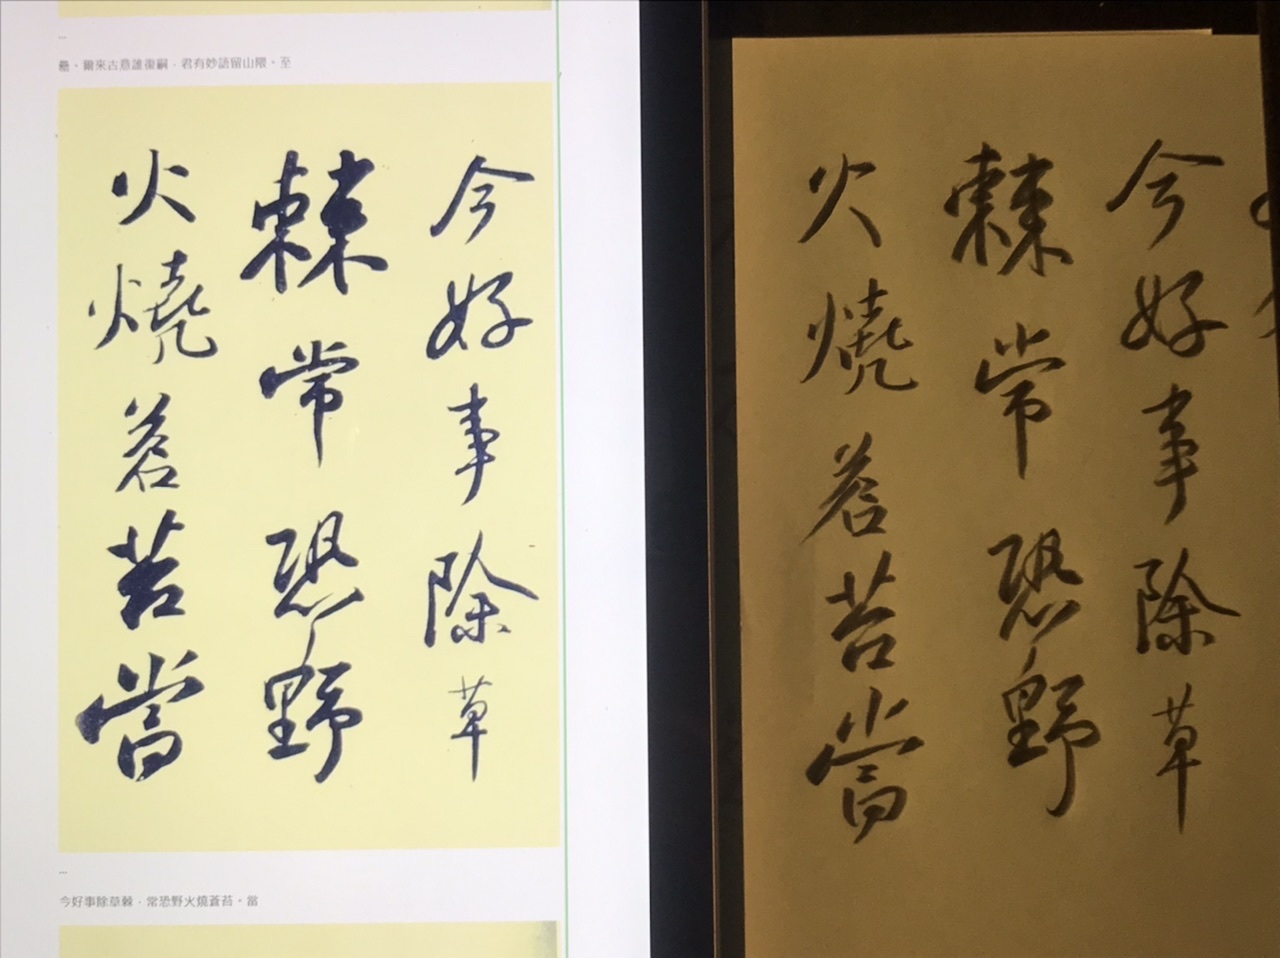 …
罍。爾來古意誰復嗣，君有妙語留山隈。至
今好事除草
棘常恐野
火燒蒼苔當
…
今好事除草棘，常恐野火燒蒼苔。當
今好事除草
棘常恐野
火燒蒼苔當